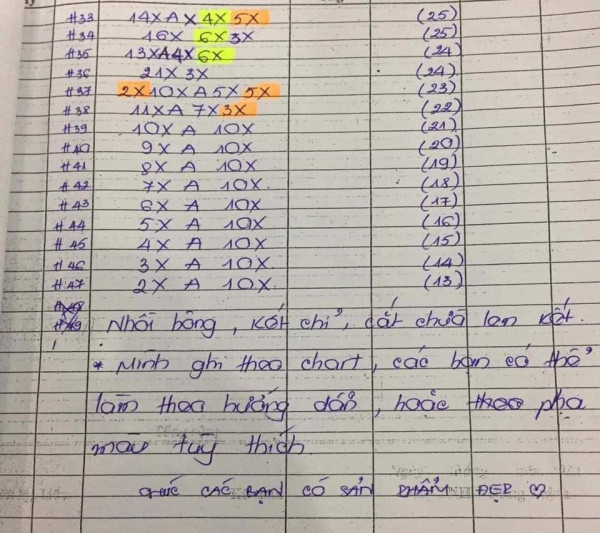 #33 14X A X 4X 5X (25)
#34 16X 6X 3X (25)
#35 13X A 4X 6X (24)
#36 21X 3X (24)
#37 2X 10X A 5X 5X (23)
#38 11X A 7X 3X (22)
#39 10X A 10X (21)
#40 9X A 10X (20)
#41 8X A 10X (19)
#42 7X A 10X. (18)
#43 6X A 10X (17)
#44 5X A 10X (16)
#45 4X A 10X (15)
#46 3X A 10X (14)
#47 2X A 10X. (13)
Nhồi bông, kết chỉ, cắt chừa len kết.
* Mình ghi theo chart, các bạn có thể
làm theo hướng dẫn, hoặc theo pha
màu tuỳ thích
CHÚC CÁC BẠN CÓ SẢN PHẨM ĐẸP ♡